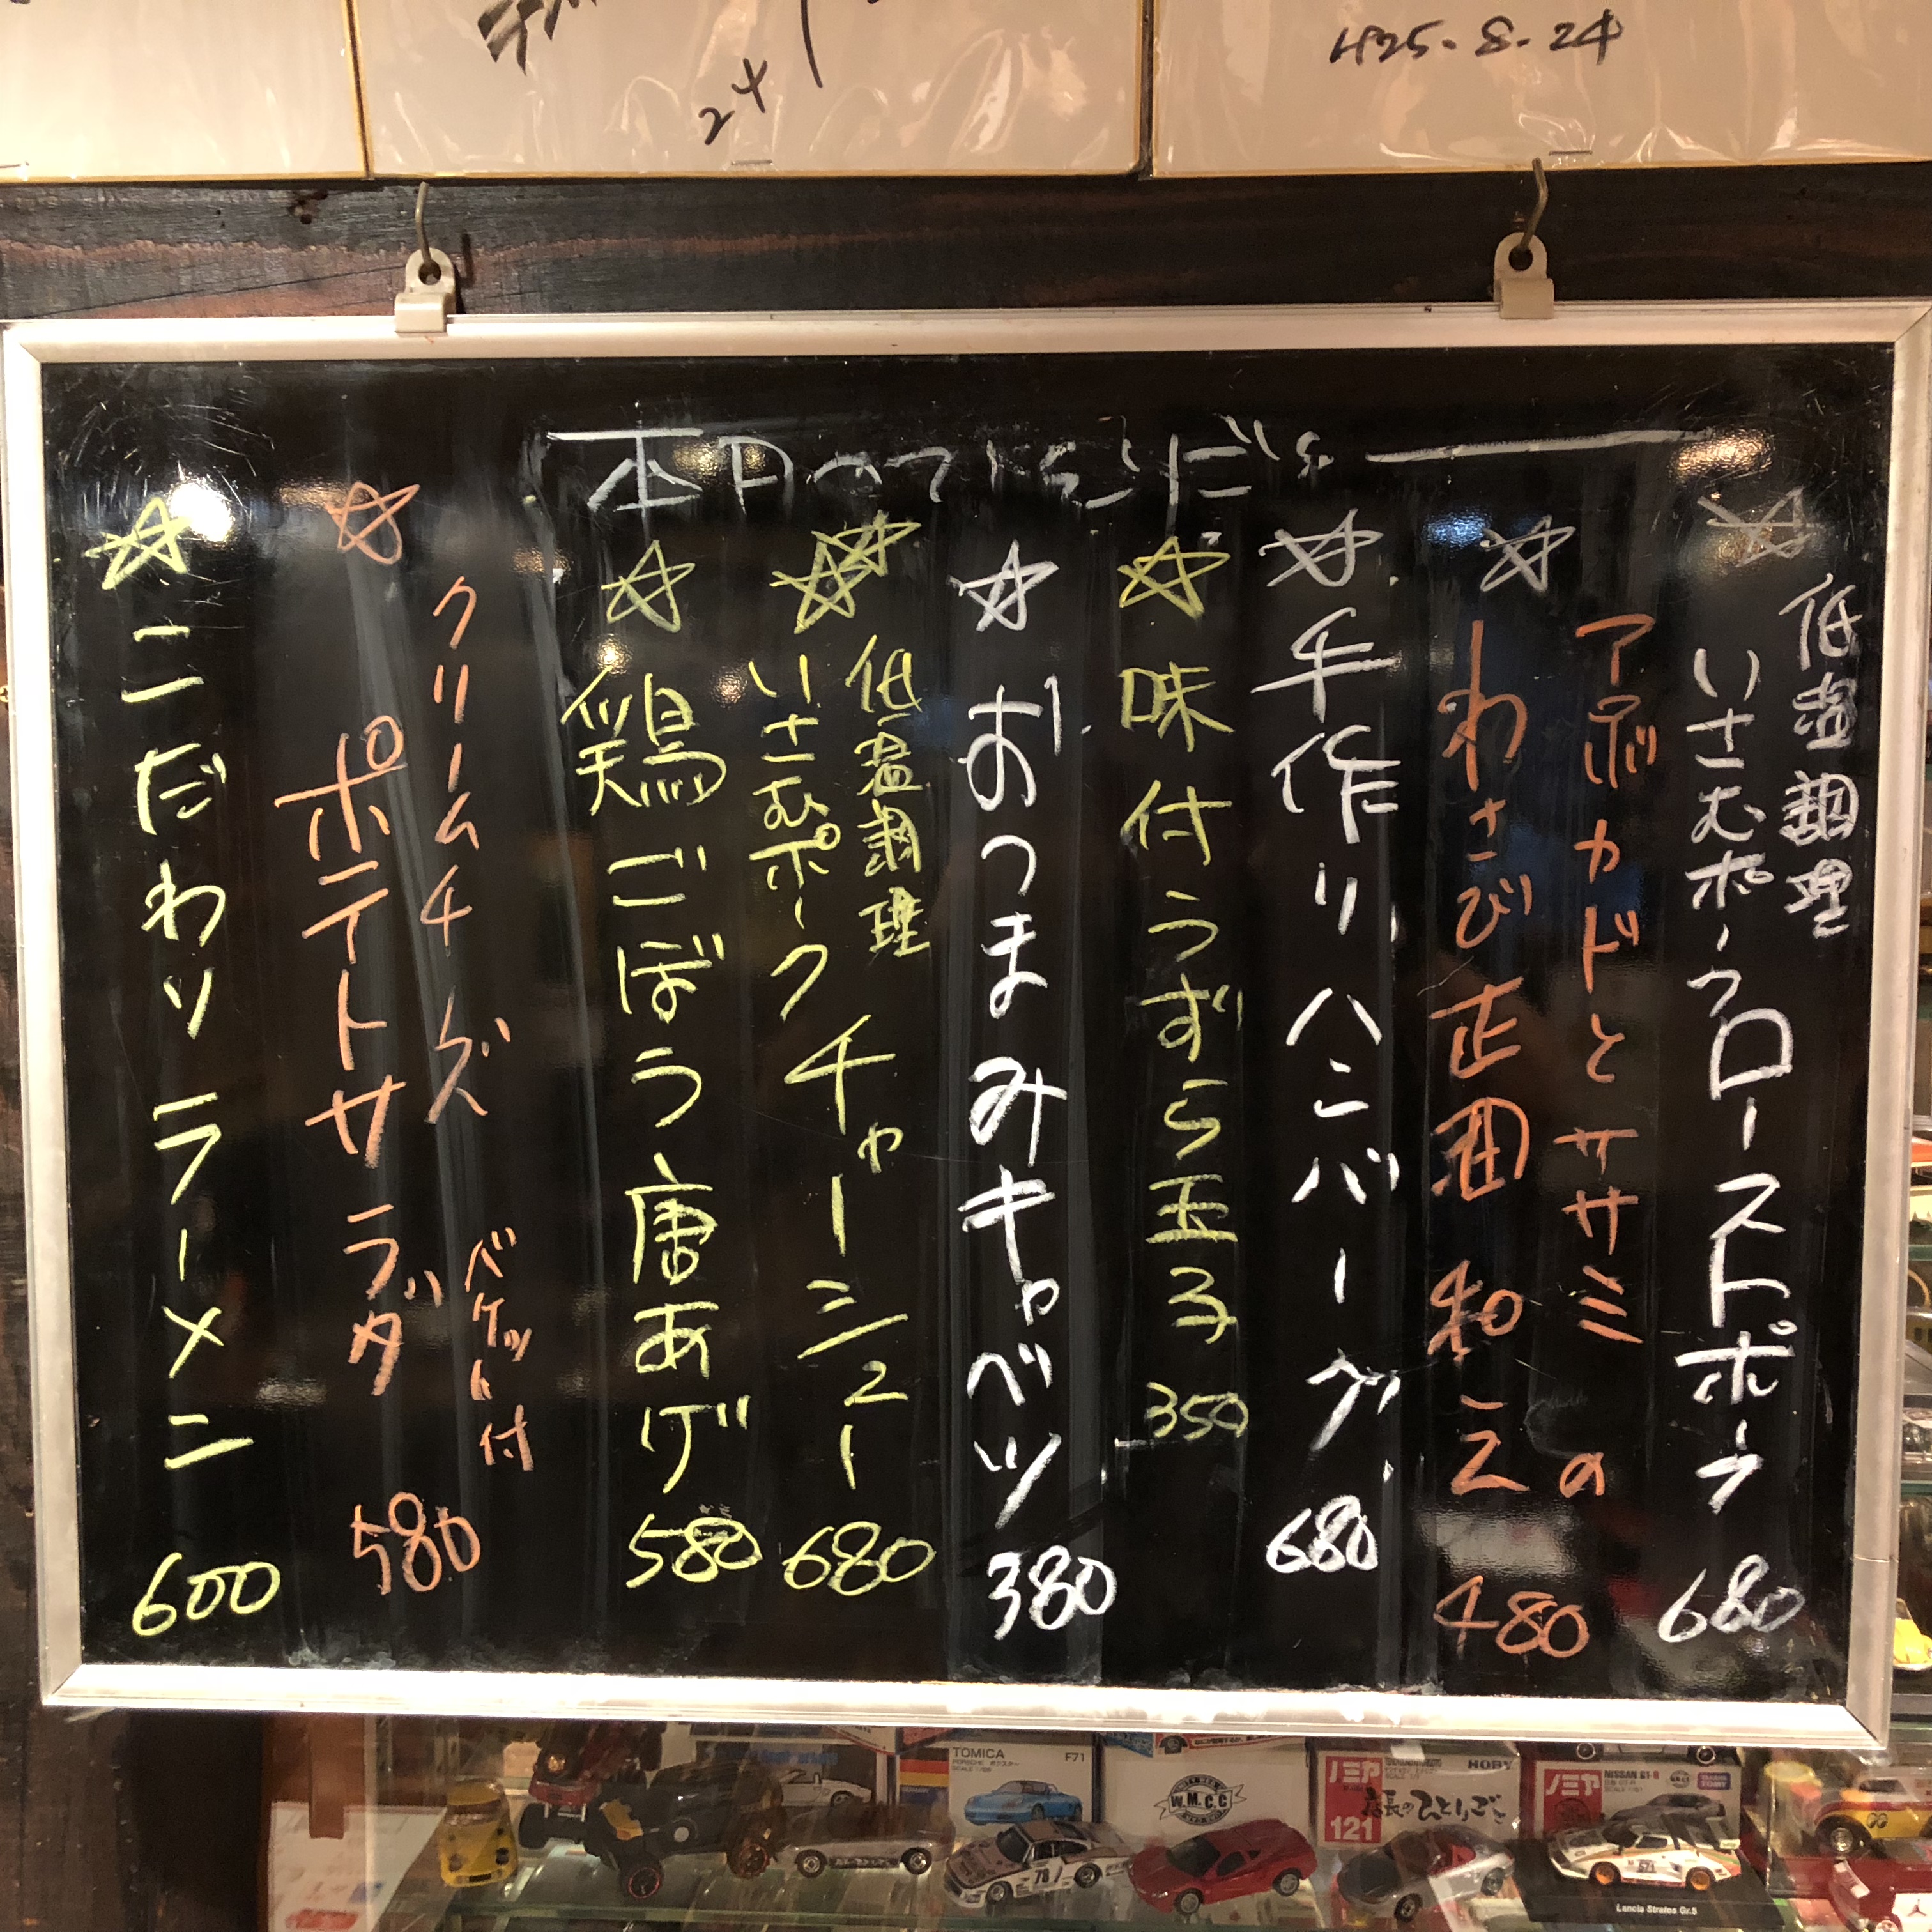 H25.8.24
24
低温調理
いさむポークローストポーク
680
アボカドとササミの
わさび正油和え
480
手作りハンバーグ
680
味付うずら玉子
350
おつまみキャベツ
380
低温調理
いさむポークチャーシュー
680
鶏ごぼう唐あげ
580
クリームチーズ
ポテトサラダ
バケット付
580
こだわりラーメン
600
TOMICA
F71
W.M.C.C
トミヤ
121
店長のひとりごと
HOBY
トミヤ
NISSAN GT-R
78
Lancia Stratos Gr.5